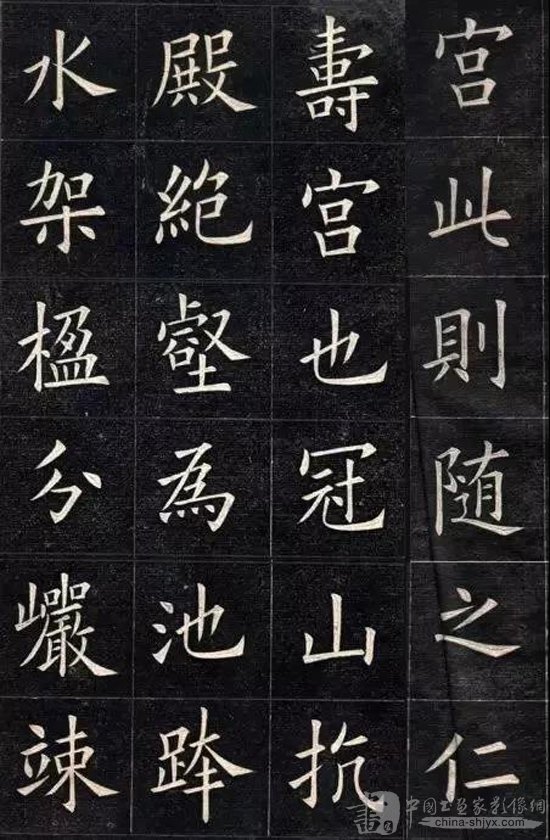 宫此則随之仁
壽宫也冠山抗
殿絶壑為池跨
水架楹分巖竦
中国书画家影像網
china-shjyx.com